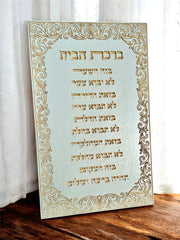 ברכת הבית
בזה השער
לא יבוא צער
בזאת הדירה
לא תבוא צרה
בזאת הדלת
לא תבוא בהלה
בזאת המחלקה
לא תבוא מחלוקת
בזה המקום
תהיה ברכה ושלום